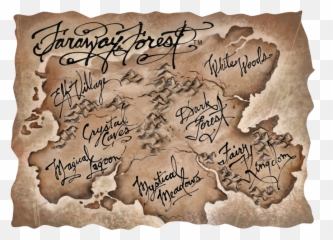 Faraway Forest™
White Woods
Elf Village
Dark
Forest
Crystal
Caves
Magical
Lagoon
Fairy
Kingdom
Mystical
Meadows